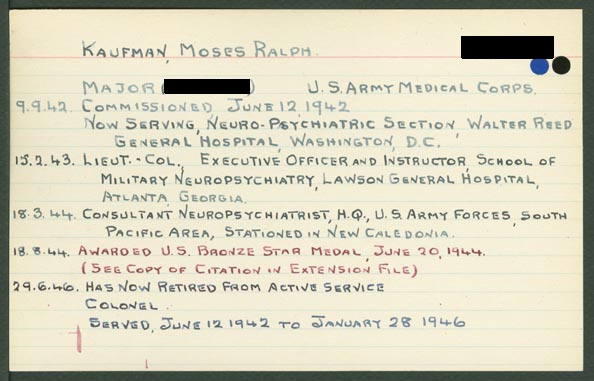 KAUFMAN, MOSES RALPH.
MAJOR ( ) U.S. ARMY MEDICAL CORPS.
9.9.42. COMMISSIONED JUNE 12 1942
NOW SERVING, NEURO-PSYCHIATRIC SECTION, WALTER REED
GENERAL HOSPITAL, WASHINGTON, D.C.
15.2.43. LIEUT.-COL., EXECUTIVE OFFICER AND INSTRUCTOR, SCHOOL OF
MILITARY NEUROPSYCHIATRY, LAWSON GENERAL HOSPITAL,
ATLANTA, GEORGIA.
18.3.44. CONSULTANT NEUROPSYCHIATRIST, H.Q., U.S. ARMY FORCES, SOUTH
PACIFIC AREA, STATIONED IN NEW CALEDONIA.
18.8.44. AWARDED U.S. BRONZE STAR MEDAL, JUNE 20, 1944.
(SEE COPY OF CITATION IN EXTENSION FILE)
29.6.46. HAS NOW RETIRED FROM ACTIVE SERVICE
COLONEL.
SERVED, JUNE 12 1942 TO JANUARY 28 1946